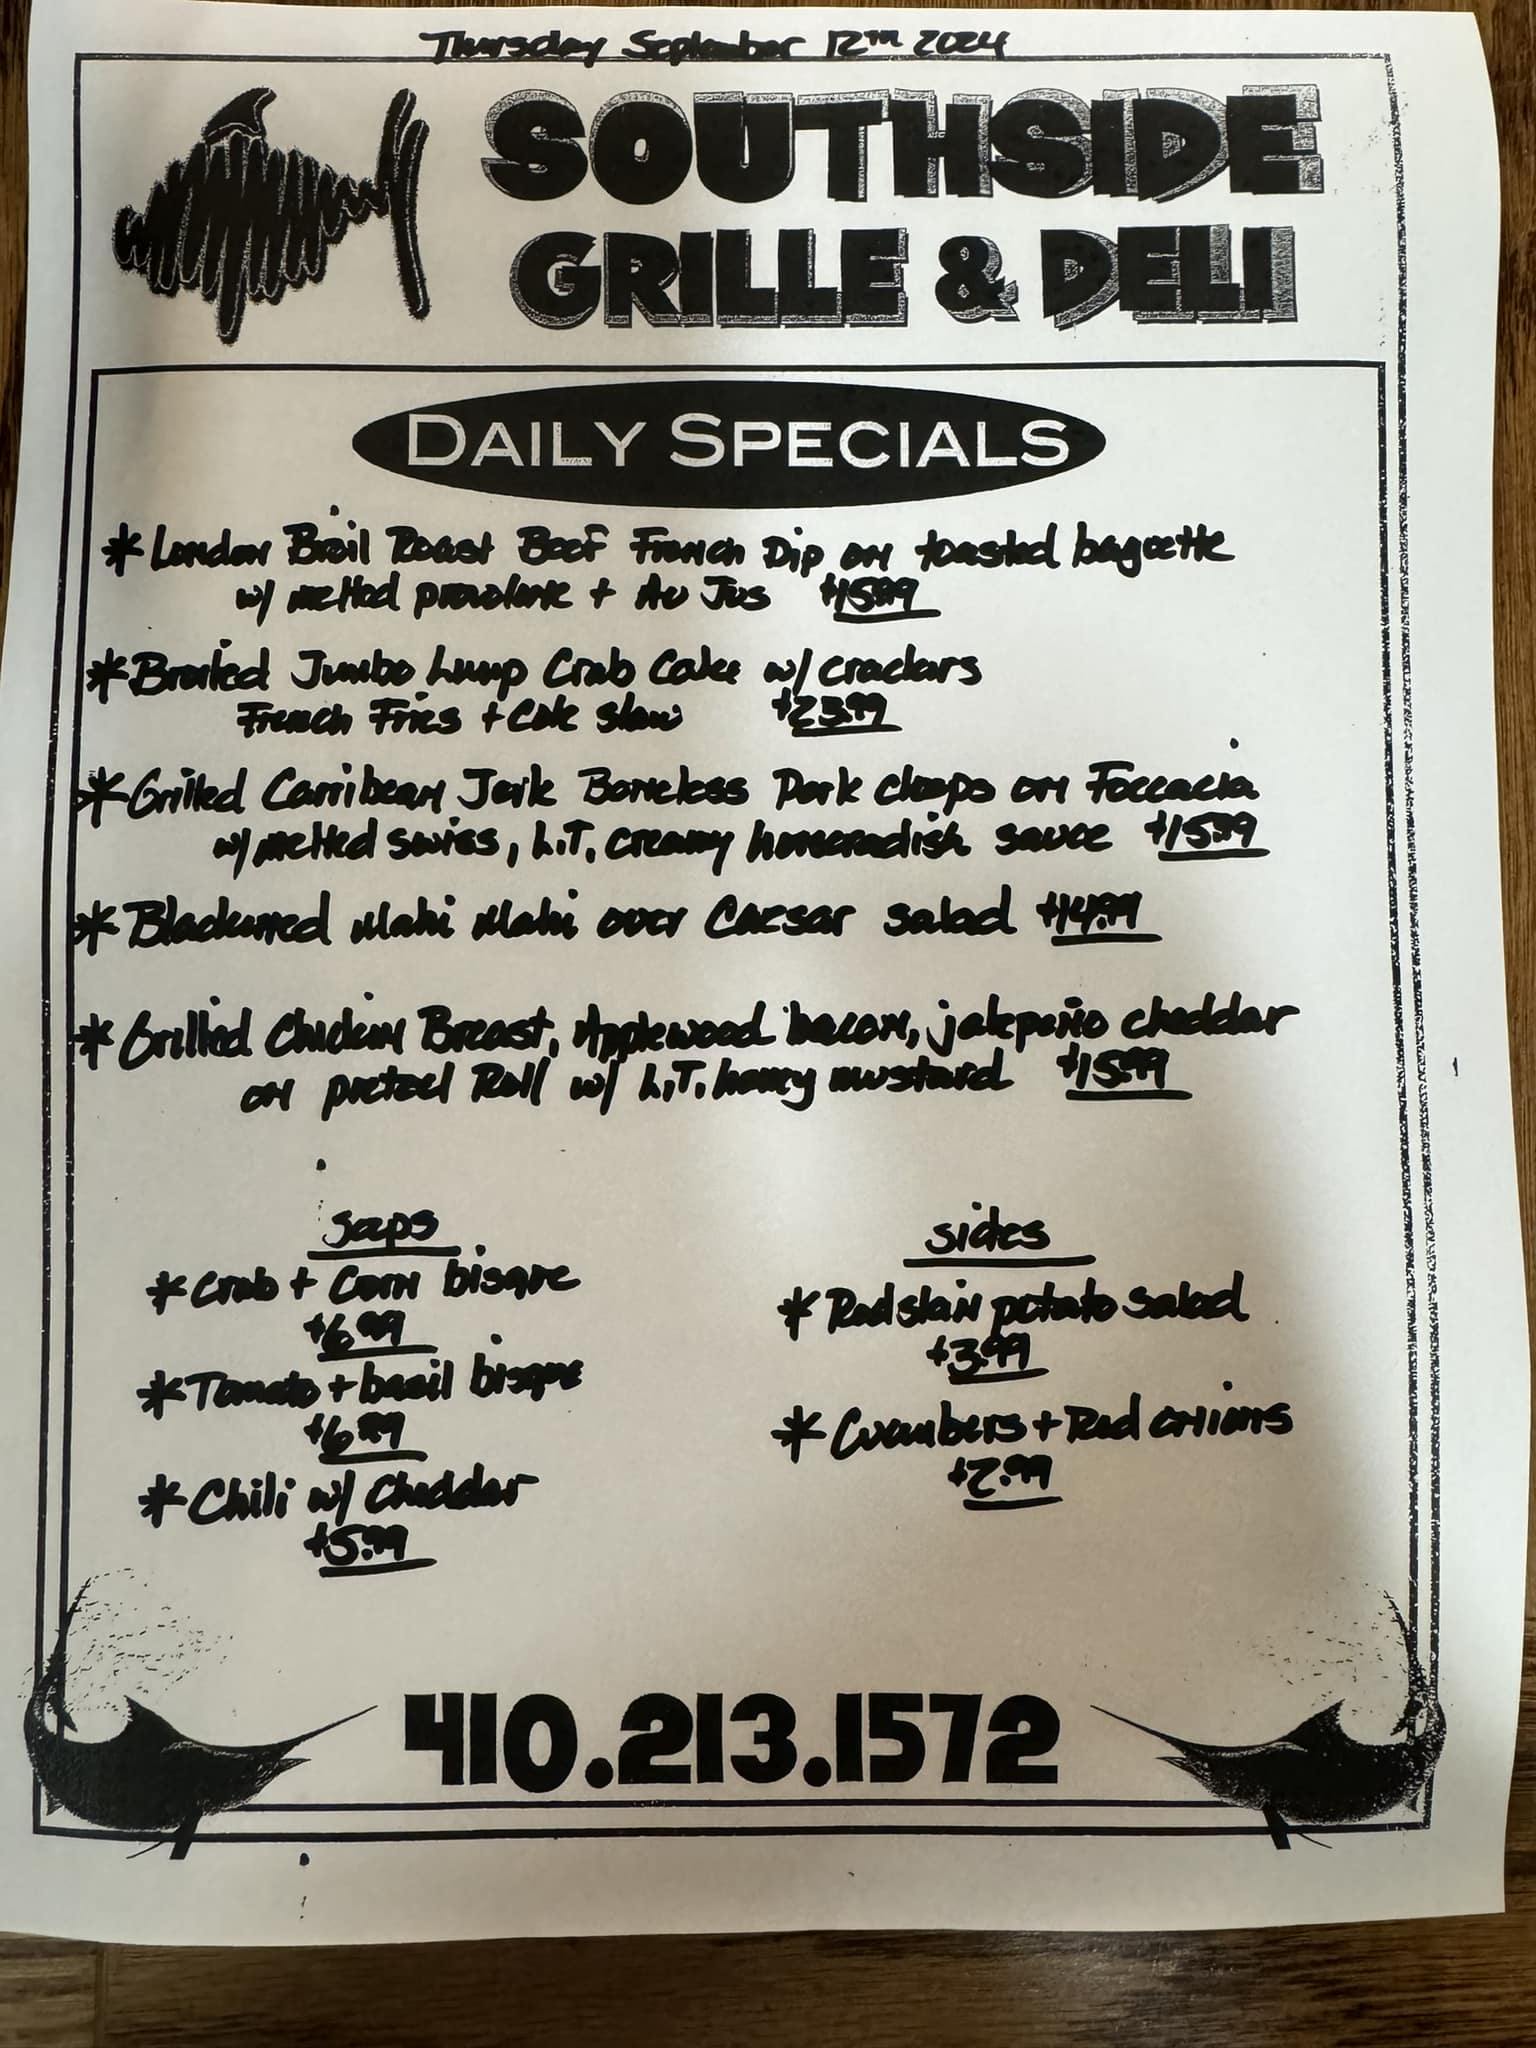 Thursday September 12th 2024
SOUTHSIDE
GRILLE & DELI
DAILY SPECIALS
* London Broil Roast Beef French Dip on toasted baguette
w/ melted provolone + Au Jus $15.99
* Broiled Jumbo Lump Crab Cake w/ crackers
French Fries + Cole slaw $23.99
* Grilled Carribean Jerk Boneless Pork chops on Foccacia
w/ melted swiss, L.T. creamy horseradish sauce $15.99
* Blackened Mahi Mahi over Caesar salad $14.99
* Grilled Chicken Breast, Applewood bacon, jalepeño cheddar
on pretzel Roll w/ L.T. honey mustard $15.99
soups
* Crab + Corn bisque
$6.99
* Tomato + basil bisque
$6.99
* Chili w/ Cheddar
$5.99
sides
* Red skin potato salad
$3.99
* Cucumbers + Red onions
$2.99
410.213.1572